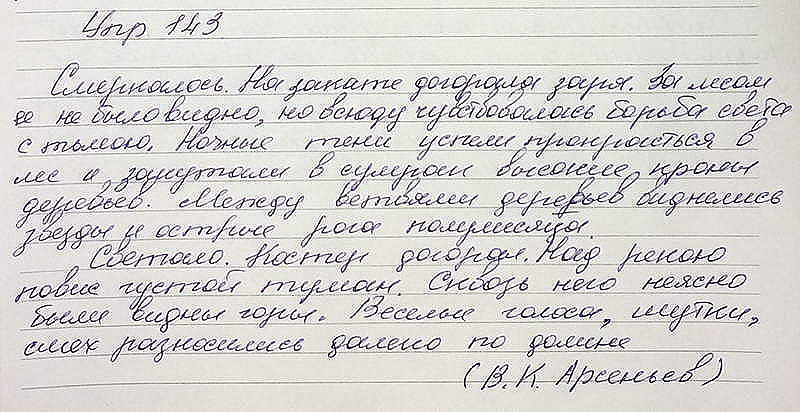 Упр 143
Смеркалось. На закате догорала заря. За лесом
ее не было видно, но всюду чувствовалась борьба света
с тьмою. Ночные тени успели прокрасться в
лес и закутали в сумрак высокие кроны
деревьев. Между ветвями деревьев виднелись
звезды и острые рога полумесяца.
Светало. Костер догорал. Над рекою
повис густой туман. Сквозь него неясно
были видны горы. Веселые голоса, шутки,
смех разносились далеко по долине
(В. К. Арсеньев)